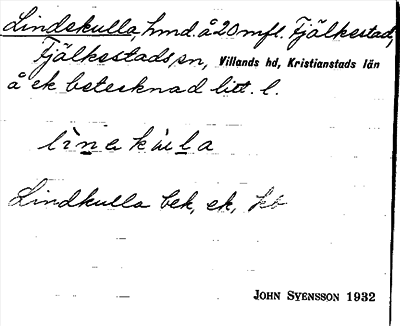 Lindskulla, hmd. å 20 mfl. Fjälkestad,
Fjälkestads sn, Villands hd, Kristianstads län
å ek betecknad litt. l.
Lindkulla bek, ek,
JOHN SVENSSON 1932